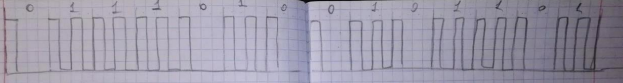 0 1 1 1 1 0 1 0 0 1 0 1 1 0 1